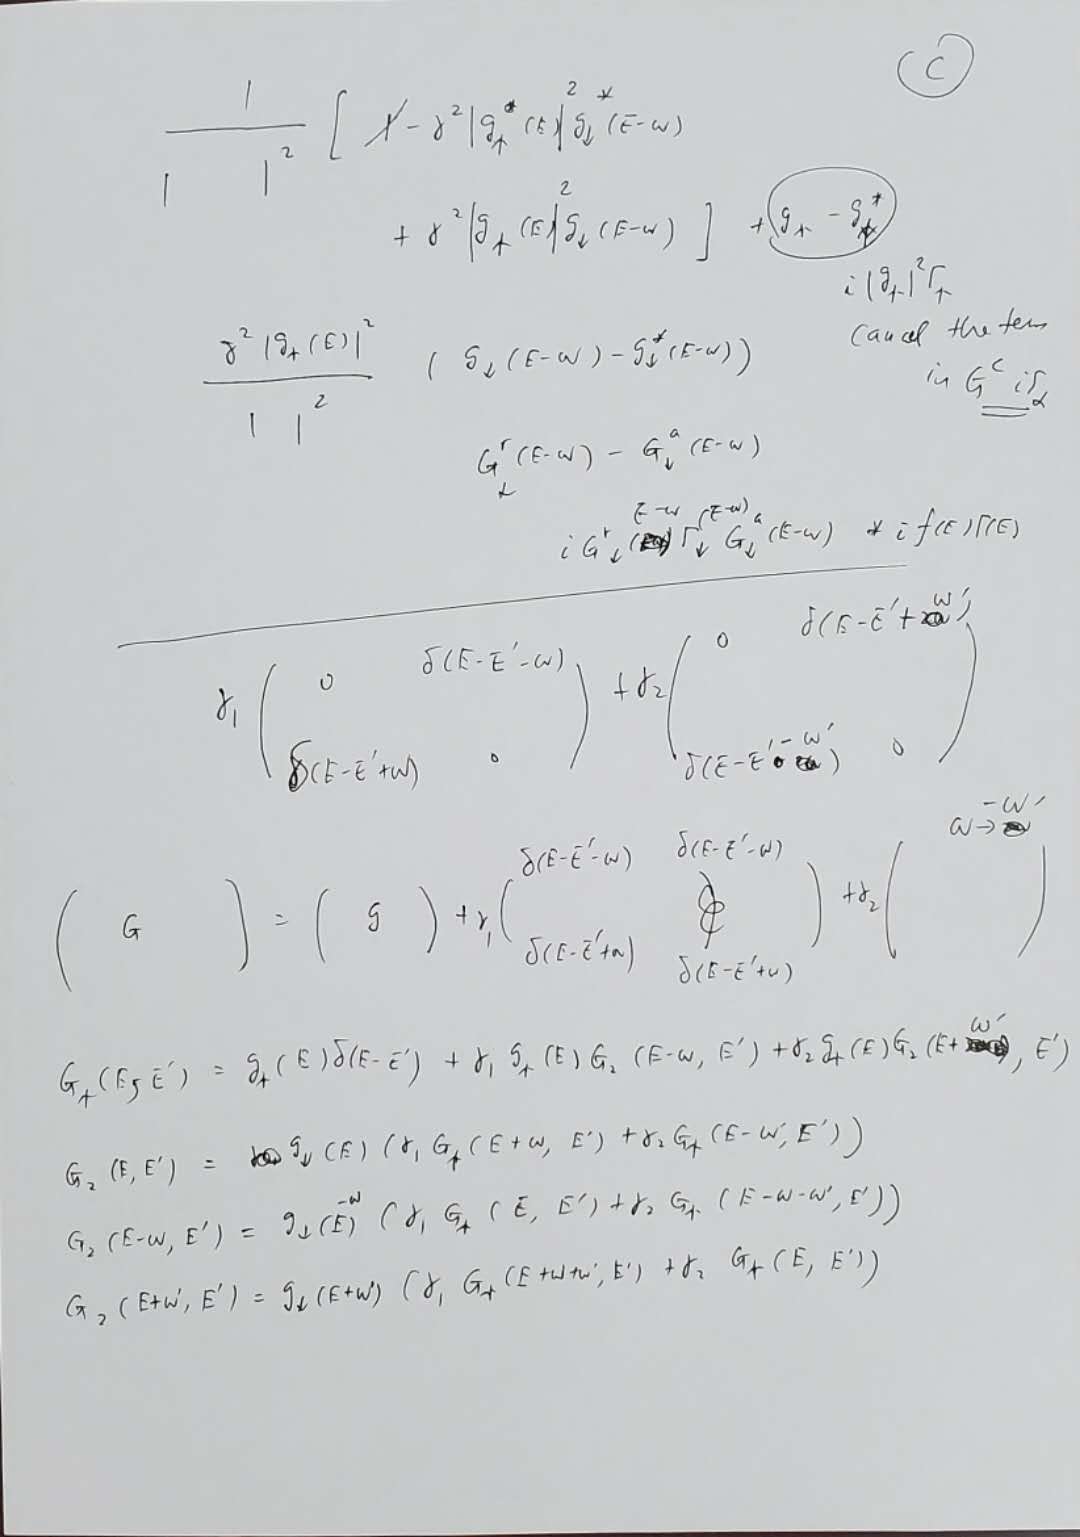 C
1 / | |² [ 1 - γ² |g↑*(E)|² g↓*(E-ω)
+ γ² |g↑(E)|² g↓(E-ω) ] + g↑ - g↑*
i |g↑|² Γ↑
cancel the term
in G^<
γ² |g↑(E)|² / | |² ( g↓(E-ω) - g↓*(E-ω))
G↓^r (E-ω) - G↓^a (E-ω)
i G↓^r (E-ω) Γ↓(E-ω) G↓^a (E-ω) * i f(E) Γ(E)
γ₁ ( 0 δ(E-E'-ω) ; δ(E-E'+ω) 0 ) + γ₂ ( 0 δ(E-E'+ω') ; δ(E-E'-ω') 0 )
ω → -ω'
( G ) = ( g ) + γ₁ ( δ(E-E'-ω) δ(E-E'-ω) ; δ(E-E'+ω) δ(E-E'+ω) ) + γ₂ ( )
G↑(E, E') = g↑(E) δ(E-E') + γ₁ g↑(E) G₂ (E-ω, E') + γ₂ g↑(E) G₂ (E+ω', E')
G₂ (E, E') = g↓(E) (γ₁ G↑(E+ω, E') + γ₂ G↑(E-ω', E'))
G₂ (E-ω, E') = g↓(E-ω) (γ₁ G↑(E, E') + γ₂ G↑(E-ω-ω', E'))
G₂ (E+ω', E') = g↓(E+ω') (γ₁ G↑(E+ω+ω', E') + γ₂ G↑(E, E'))